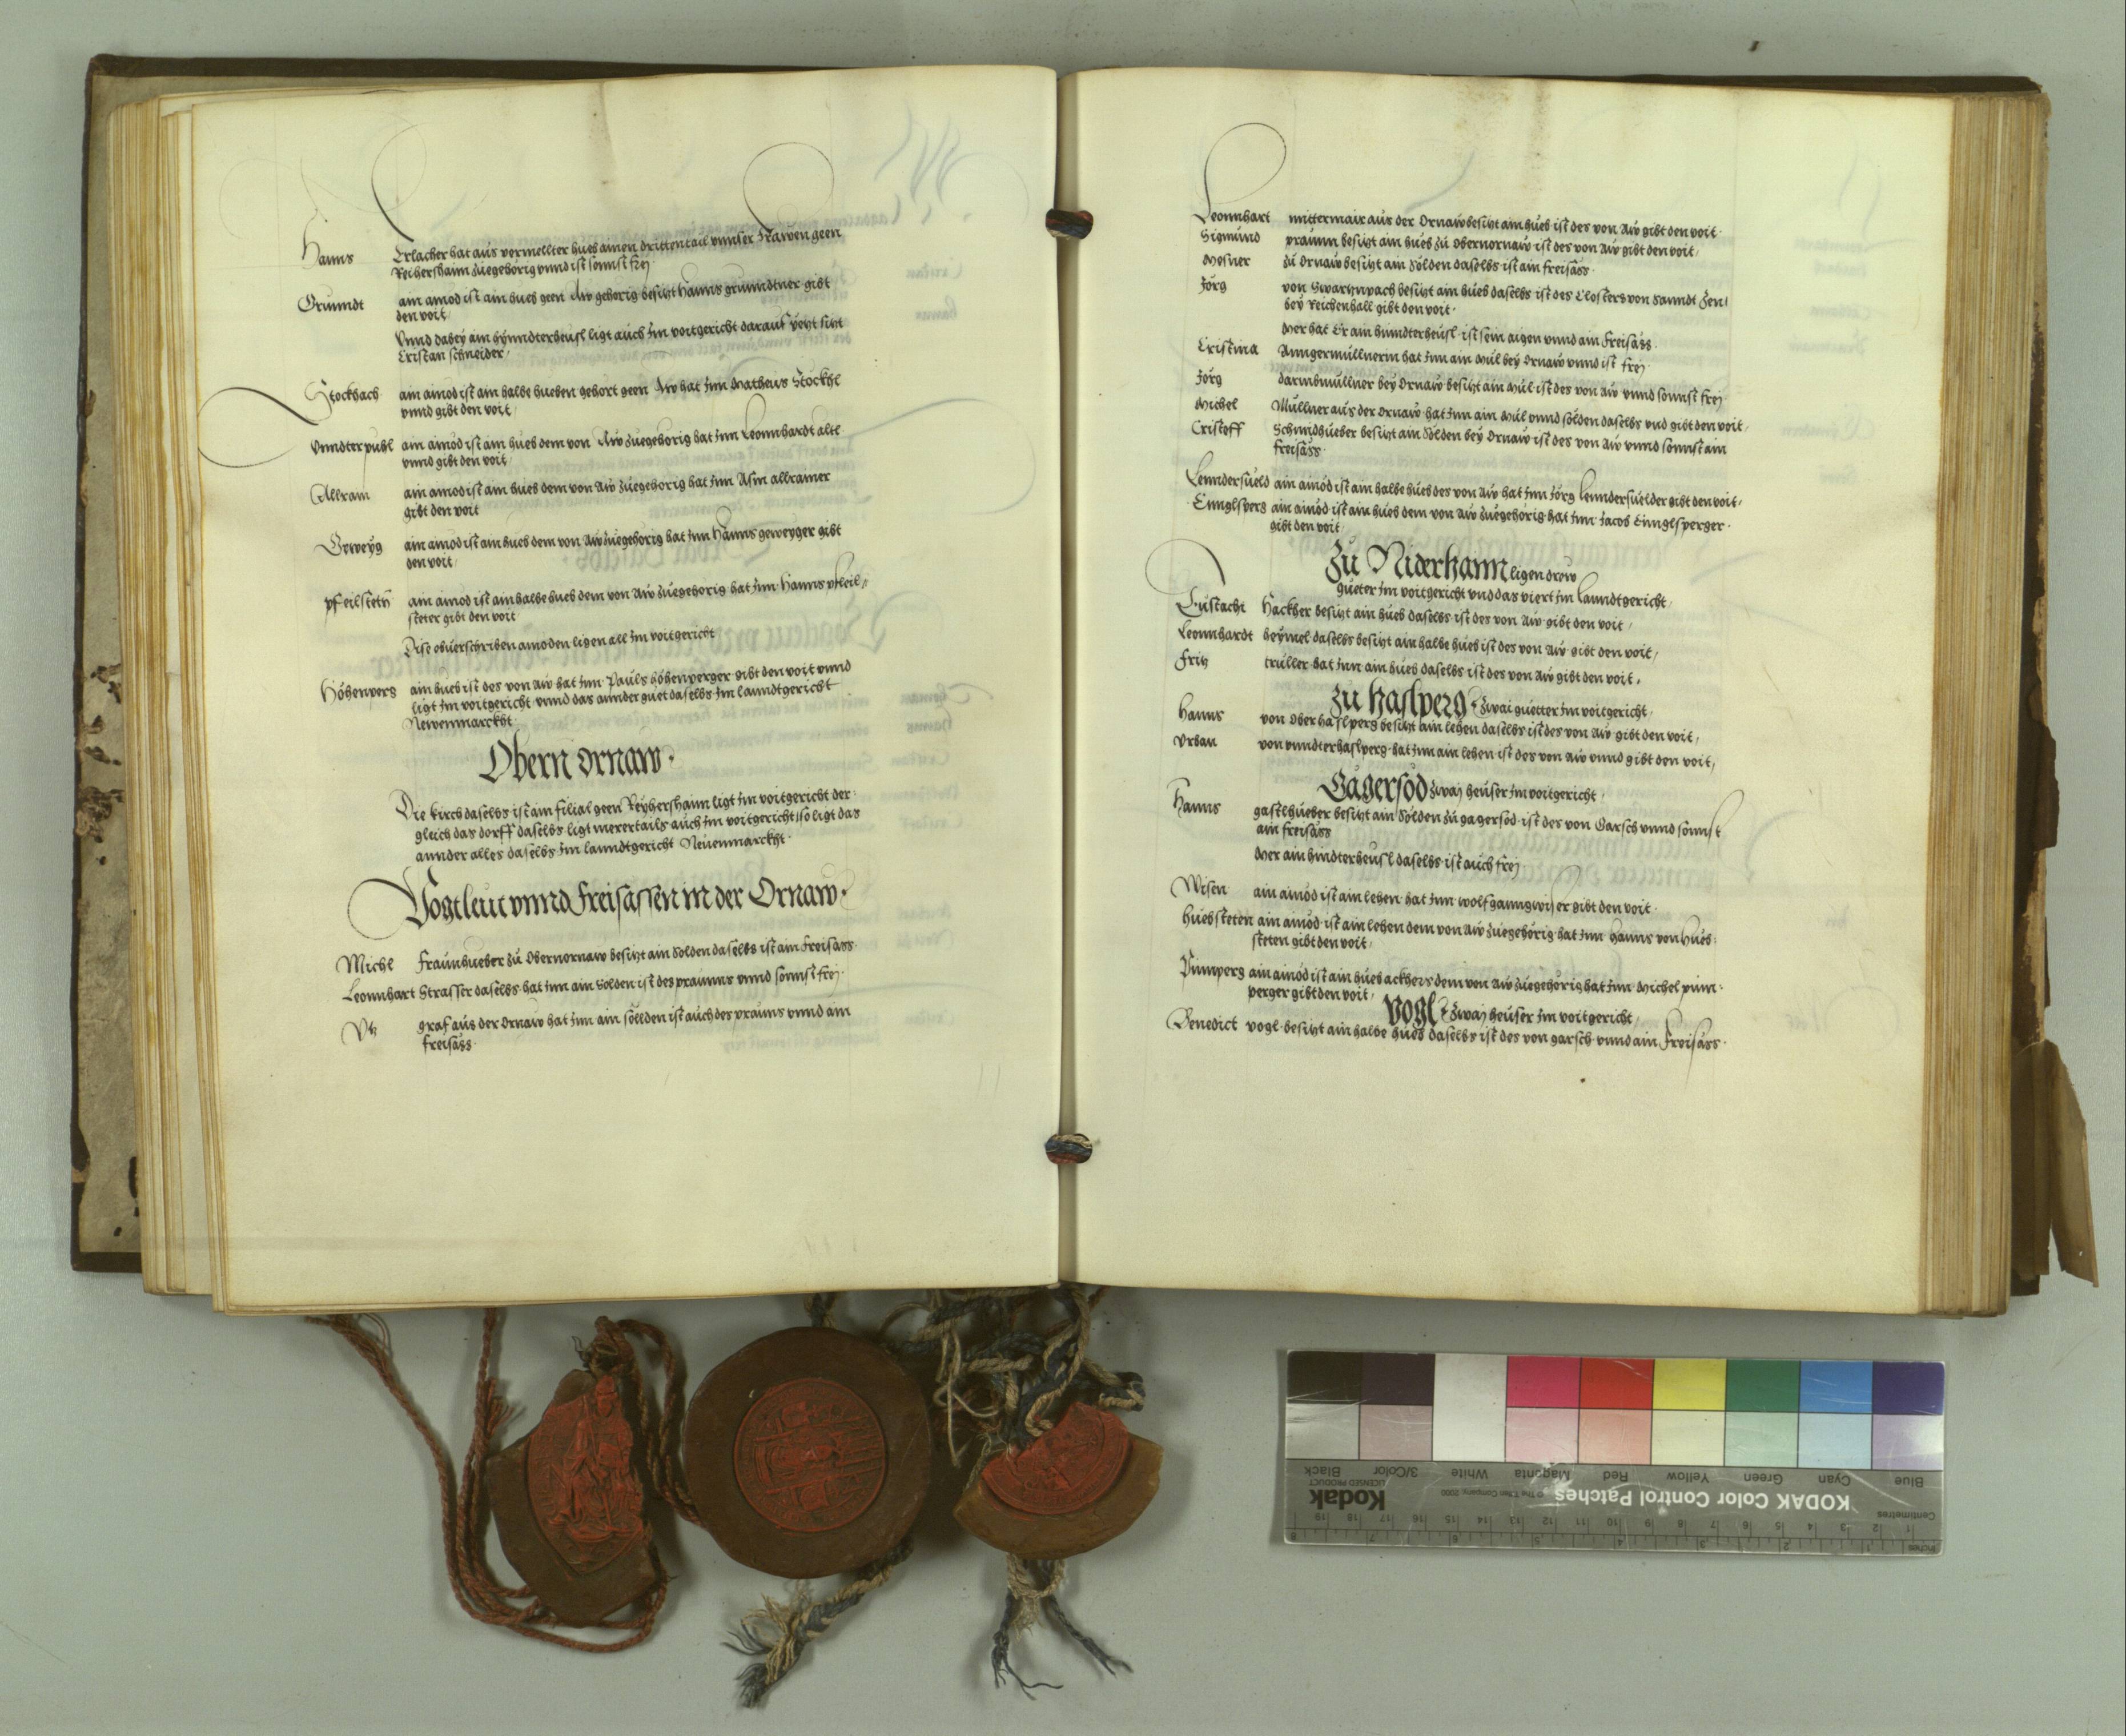 Hanns Erlacher hat aus vermellter hueb ainen drittentail vnnser Frawen geen
Reichershaim zuegehorig vnnd ist sonnst frej
Grunndt ain ainod ist ain hueb geen Aw gehorig besitzt Hanns grunndtner gibt
den voit
Vnnd dabey ain hynndterheusl ligt auch jm voitgericht darauf yetzt sitzt
Cristan schneider
Stockhach ain ainod ist ain halbe hueben gehort geen Aw hat jnn Matheus Stockhl
vnnd gibt den voit
Vnndterpuhl ain ainod ist ain hueb dem von Aw zuegehorig hat jnn Leonnhardt alte
vnnd gibt den voit
Allram ain ainod ist ain hueb dem von Aw zuegehorig hat jnn Asm allramer
gibt den voit
Geweyg ain ainod ist ain hueb dem von Aw zuegehorig hat jnn Hanns geweyger gibt
den voit
pfeilstetn ain ainod ist ain halbe hueb dem von Aw zuegehorig hat jnn Hanns pfeil-
steter gibt den voit
Dise obuerschriben ainoden ligen all jm voitgericht
Höhenperg ain hueb ist des von Aw hat jnn Pauls höhenperger gibt den voit vnnd
ligt jm voitgericht vnnd das annder guet daselbs jm lanndtgericht
Newenmarckht
Obern Ornaw
Die kirch daselbs ist ain filial geen Reychershaim ligt jm voitgericht der-
gleich das dorff daselbs ligt merertails auch jm voitgericht so ligt das
annder alles daselbs jm lanndtgericht Neuenmarckht
Vogtleut vnnd Freisassen in der Ornaw
Michl Fraunhueber zu Obernornaw besitzt ain Solden daselbs ist ain freisäss
Leonnhart Strasser daselbs hat jnn ain Solden ist des praunns vnnd sonnst frej
Vtz graf aus der Ornaw hat jnn ain söllden ist auch des prauns vnnd ain
freisäss
Leonnhart mittermair aus der Ornaw besitzt ain hueb ist des von Aw gibt den voit
Sigmund praunn besitzt ain hueb zu Obernornaw ist des von Aw gibt den voit
Mesner zu Ornaw besitzt ain Sölden daselbs ist ain freisäss
Jörg von Swartzpach besitzt ain hueb daselbs ist des Closters von Sanndt Zen
bey Reichenhall gibt den voit
Mer hat Er ain hinndterheusl ist sein aigen vnnd ain freisäss
Cristina Anngermullnerin hat jnn ain Mül bey Ornaw vnnd ist frej
Jörg darmbmüllner bey Ornaw besitzt ain Mül ist des von Aw vnnd sonnst frej
Michel Müllner aus der Ornaw hat jnn ain Mül vnnd sölden daselbs vnd gibt den voit
Cristoff Schmidhueber besitzt ain Sölden bey Ornaw ist des von Aw vnnd sonnst ain
freisäss
Lenndersueld ain ainöd ist ain halbe hueb des von Aw hat jnn Jörg lenndersuelder gibt den voit
Einglsperg ain ainöd ist ain hueb dem von Aw zuegehörig hat jnn Jacob Einglsperger
gibt den voit
Zu Niderhaim ligen drew
gueter jm voitgericht vnd das viert jm lanndtgericht
Eustachi Hackher besitzt ain hueb daselbs ist des von Aw gibt den voit
Leonnhardt heymel daselbs besitzt ain halbe hueb ist des von Aw gibt den voit
Fritz truller hat jnn ain hueb daselbs ist des von Aw gibt den voit
Zu Haslperg zwai guetter jm voitgericht
Hanns von Oberhaslperg besitzt ain lehen daselbs ist des von Aw gibt den voit
Vrban von vnndterhaslperg hat jnn ain lehen ist des von Aw vnnd gibt den voit
Gagersöd zway heuser jm voitgericht
Hanns gastlhueber besitzt ain Sölden zu gagersöd ist des von Garsch vnnd sonnst
ain freisäss
Mer ain hindterheusl daselbs ist auch frej
Wisen ain ainöd ist ain lehen hat jnn wolfganng wiser gibt den voit
Huebsteten ain ainöd ist ain lehen dem von Aw zuegehörig hat jnn Hanns von Hueb-
steten gibt den voit
Pimperg ain ainöd ist ain hueb ackhers dem von Aw zuegehörig hat jnn Michel pim-
perger gibt den voit
Vogl zway heuser jm voitgericht
Benedict vogl besitzt ain halbe hueb daselbs ist des von garsch vnnd ain freisäss
Inches
Centimetres
KODAK Color Control Patches
© The Tiffen Company, 2000
Kodak
LICENSED PRODUCT
Blue Cyan Green Yellow Red Magenta White 3/Color Black